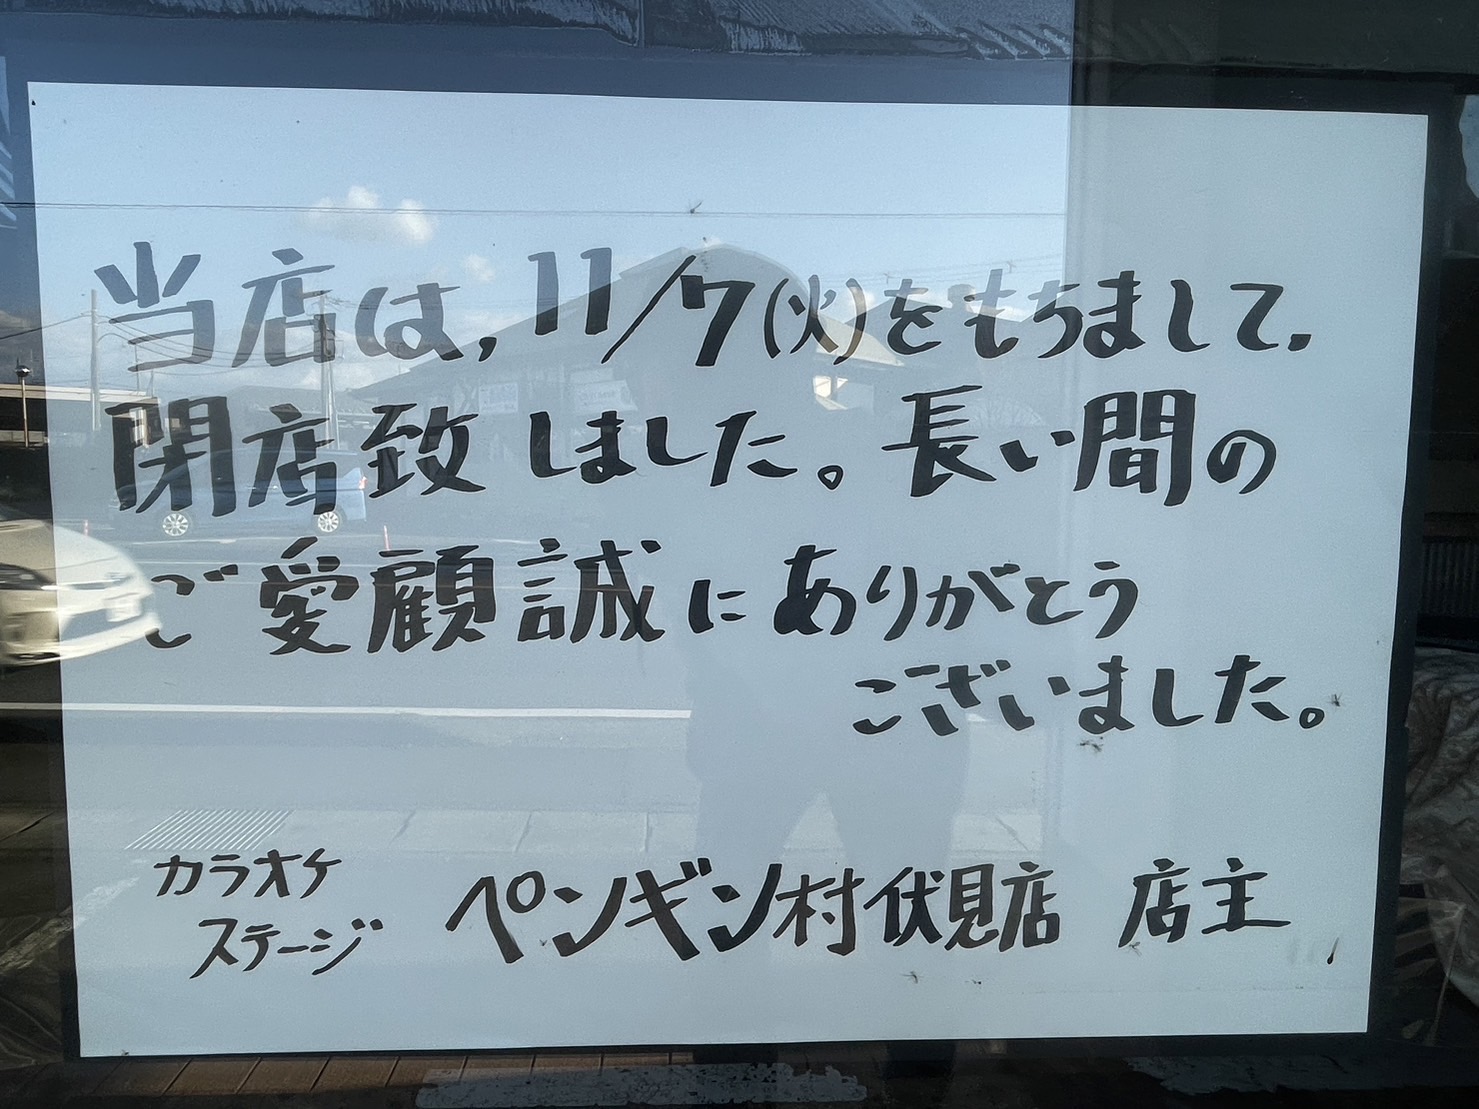 当店は,11/7(火)をもちまして,
閉店致しました。長い間の
ご愛顧誠にありがとう
ございました。
カラオケ
ステージ
ペンギン村伏見店 店主